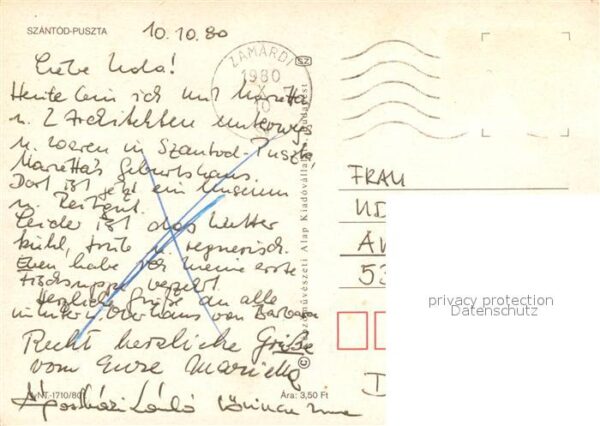 SZÁNTÓD-PUSZTA
10.10.80
ZAMÁRDI
1980
X
10
SZ
Liebe Uda!
Heute bin ich mit Marietta
u. 2 Architekten unterwegs
u. waren in Szántod-Puszta,
Marietta's Geburtshaus.
Dort ist jetzt ein Museum
u. Restaur.
Leider ist das Wetter
kühl, trübe u. regnerisch.
Eben habe ich meine erste
Fischsuppe verzehrt.
Herzliche Grüße an alle
im Unter u. Oberhaus von Barbara
Recht herzliche Grüße
vom Eure Marietta
László
Képzőművészeti Alap Kiadóvállalata, Budapest
FRAU
UD
A
53
D
privacy protection
Datenschutz
NT.-1710/80
Ára: 3,50 Ft